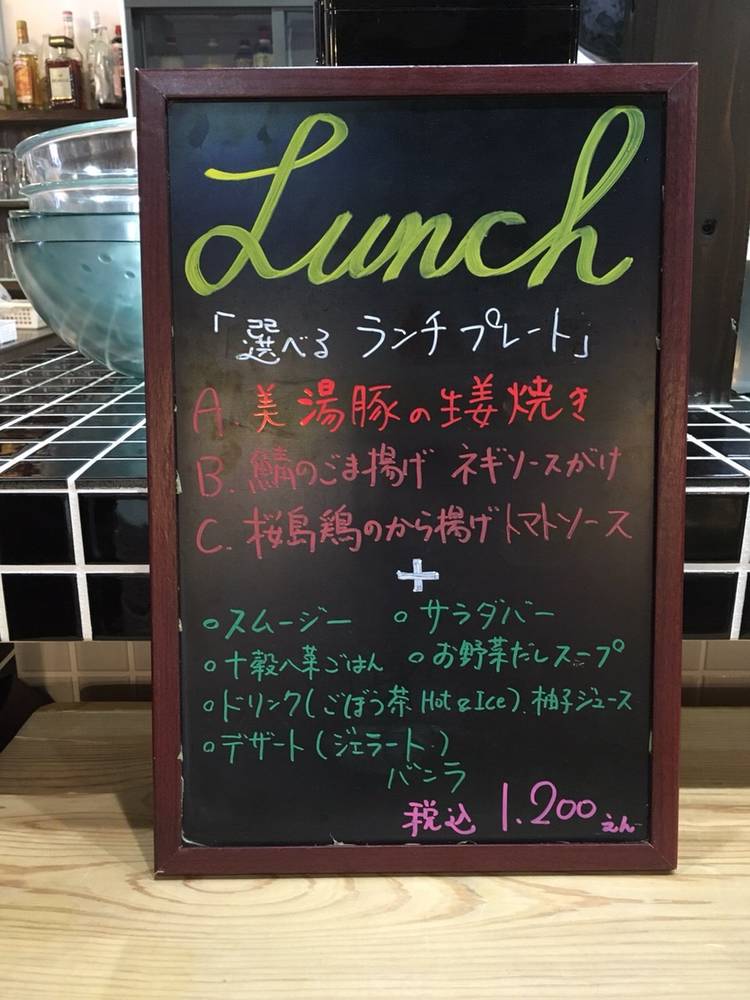 Lunch
「選べる ランチプレート」
A. 美湯豚の生姜焼き
B. 鯖のごま揚げ ネギソースがけ
C. 桜島鶏のから揚げトマトソース
+
○スムージー ○サラダバー
○十穀八菜ごはん ○お野菜だしスープ
○ドリンク(ごぼう茶 Hot & Ice). 柚子ジュース
○デザート(ジェラート)
バニラ
税込 1.200えん